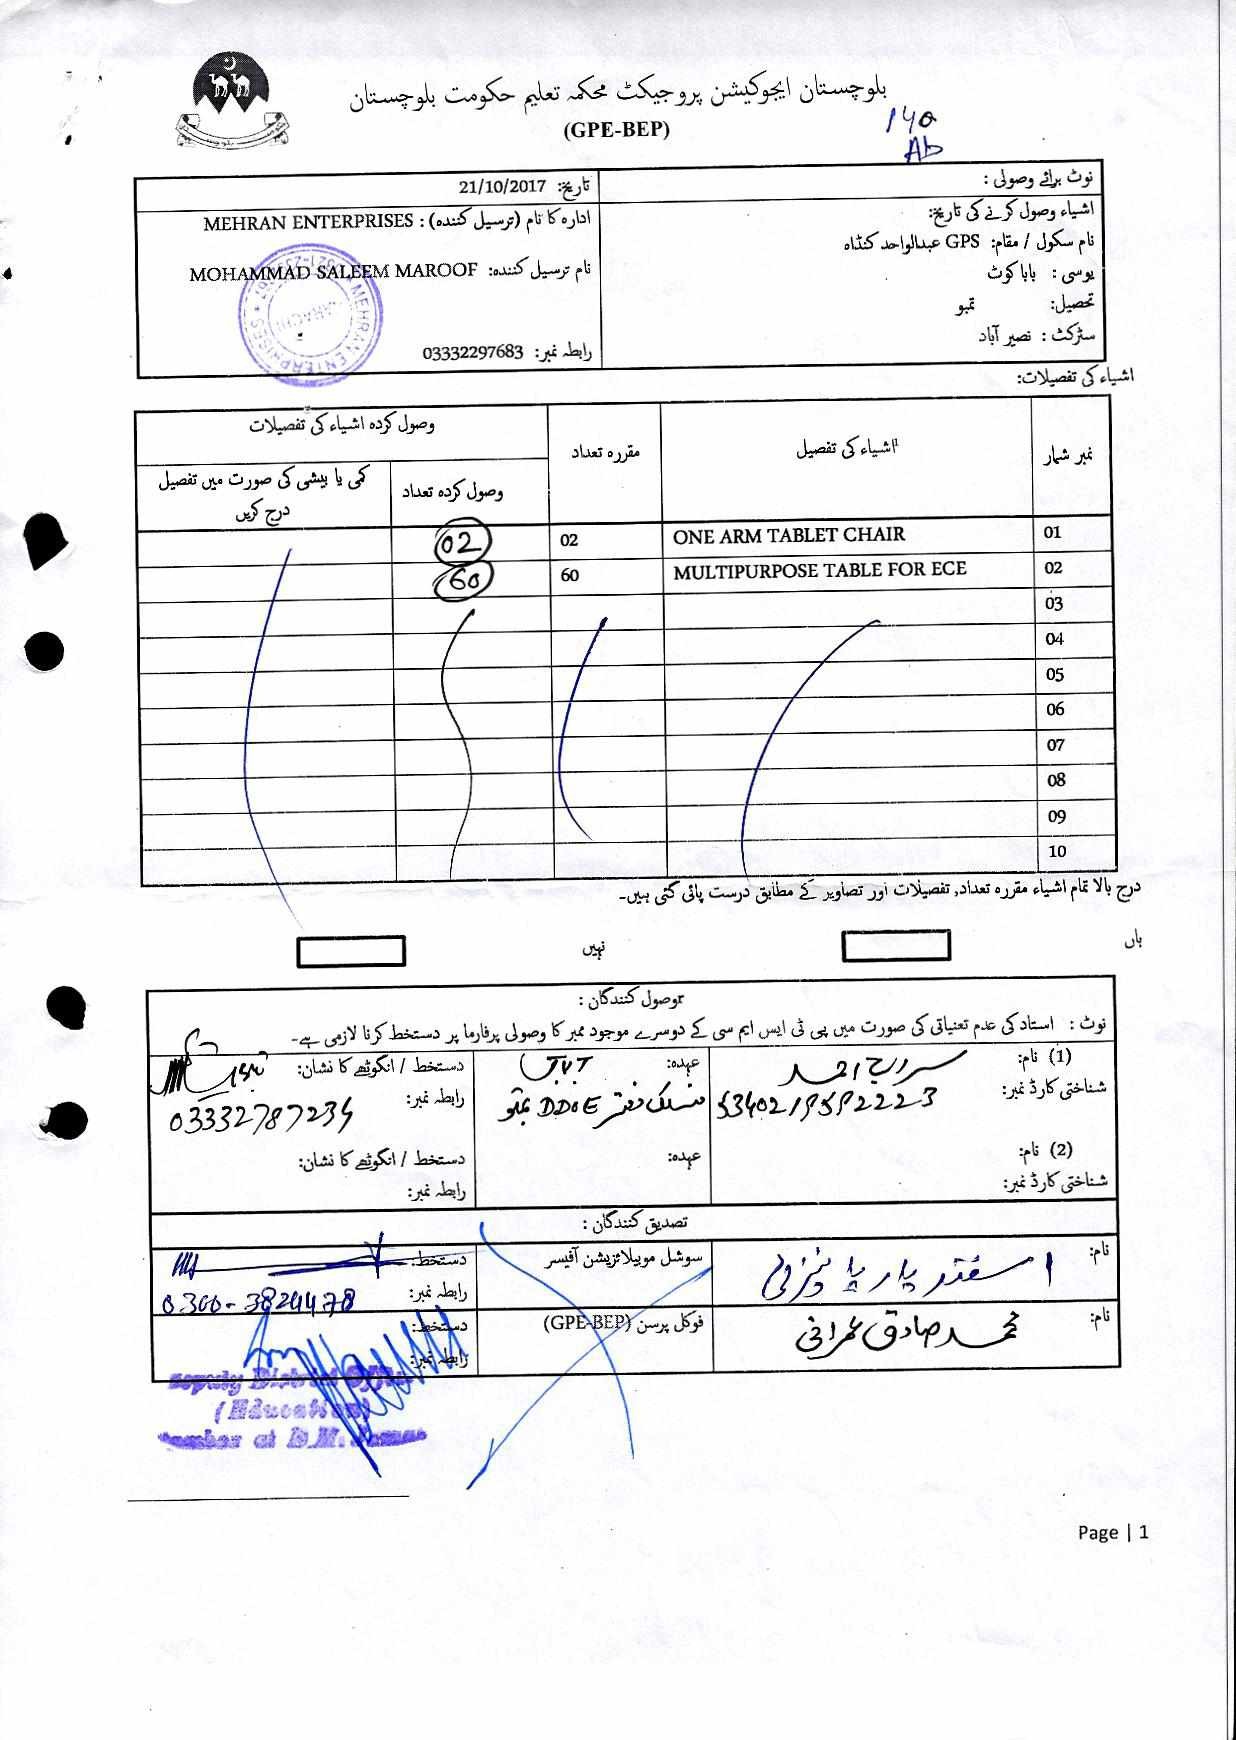 بلوچستان ایجوکیشن پروجیکٹ محکمہ تعلیم حکومت بلوچستان
(GPE-BEP)
140
Ab
نوٹ برائے وصولی :
تاریخ: 21/10/2017
اشیاء وصول کرنے کی تاریخ:
نام سکول / مقام: GPS عبدالواحد کنڈاہ
یوسی : بابا کوٹ
تحصیل: تمبو
سٹرکٹ : نصیر آباد
ادارہ کا نام (ترسیل کنندہ) : MEHRAN ENTERPRISES
نام ترسیل کنندہ: MOHAMMAD SALEEM MAROOF
MEHRAN ENTERPRISES
KARACHI
رابطہ نمبر: 03332297683
اشیاء کی تفصیلات:
نمبر شمار اشیاء کی تفصیل مقررہ تعداد وصول کردہ اشیاء کی تفصیلات
وصول کردہ تعداد کمی یا بیشی کی صورت میں تفصیل درج کریں
01 ONE ARM TABLET CHAIR 02 02
02 MULTIPURPOSE TABLE FOR ECE 60 60
03
04
05
06
07
08
09
10
درج بالا تمام اشیاء مقررہ تعداد, تفصیلات اور تصاویر کے مطابق درست پائی گئی ہیں۔
ہاں نہیں
وصول کنندگان :
نوٹ : استاد کی عدم تعنیاتی کی صورت میں پی ٹی ایس ایم سی کے دوسرے موجود ممبر کا وصولی پرفارما پر دستخط کرنا لازمی ہے۔
(1) نام: احمد
شناختی کارڈ نمبر: 5340219592223
عہدہ: J.V.T
دفتر DDOE تمبو
دستخط / انگوٹھے کا نشان:
رابطہ نمبر: 03332787234
(2) نام:
شناختی کارڈ نمبر:
عہدہ:
دستخط / انگوٹھے کا نشان:
رابطہ نمبر:
تصدیق کنندگان :
نام:
سوشل موبیلائزیشن آفیسر
دستخط:
رابطہ نمبر: 0300-3824478
نام: محمد صادق عمرانی
فوکل پرسن (GPE-BEP)
دستخط:
رابطہ نمبر:
Deputy District
(Education)
at D.M.
Page | 1